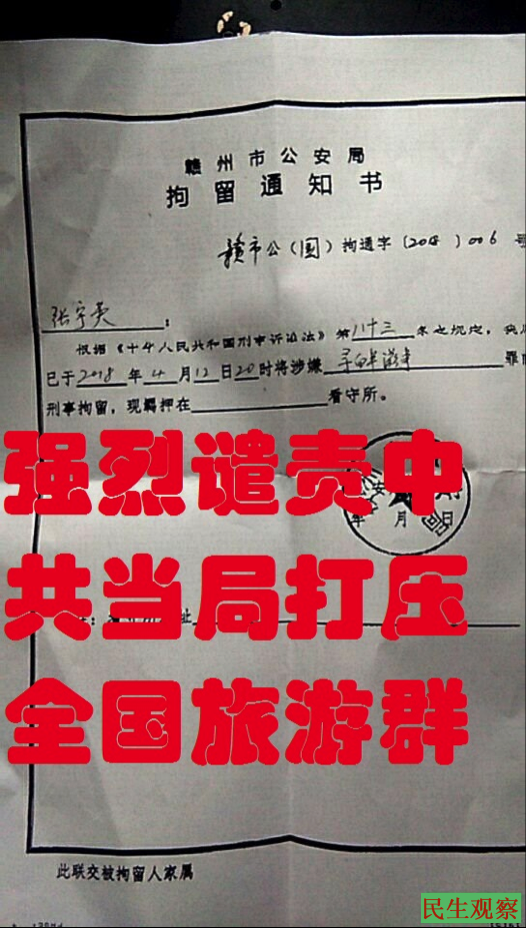 赣州市公安局
拘留通知书
赣市公（国）拘通字〔2018〕006号
张宇英：
根据《中华人民共和国刑事诉讼法》第八十三条之规定，我局
已于2018年4月12日20时将涉嫌寻衅滋事罪的
刑事拘留，现羁押在看守所。
年 月 日
强烈谴责中
共当局打压
全国旅游群
此联交被拘留人家属
民生观察